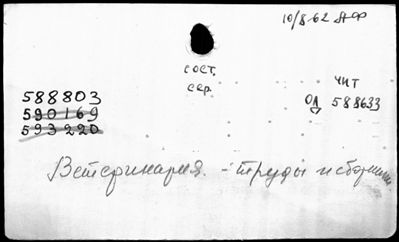 10/8-62
сост.
сер.
чит
588803
ОД 588633
590169
593220
Ветеринария. - труды и сборники.